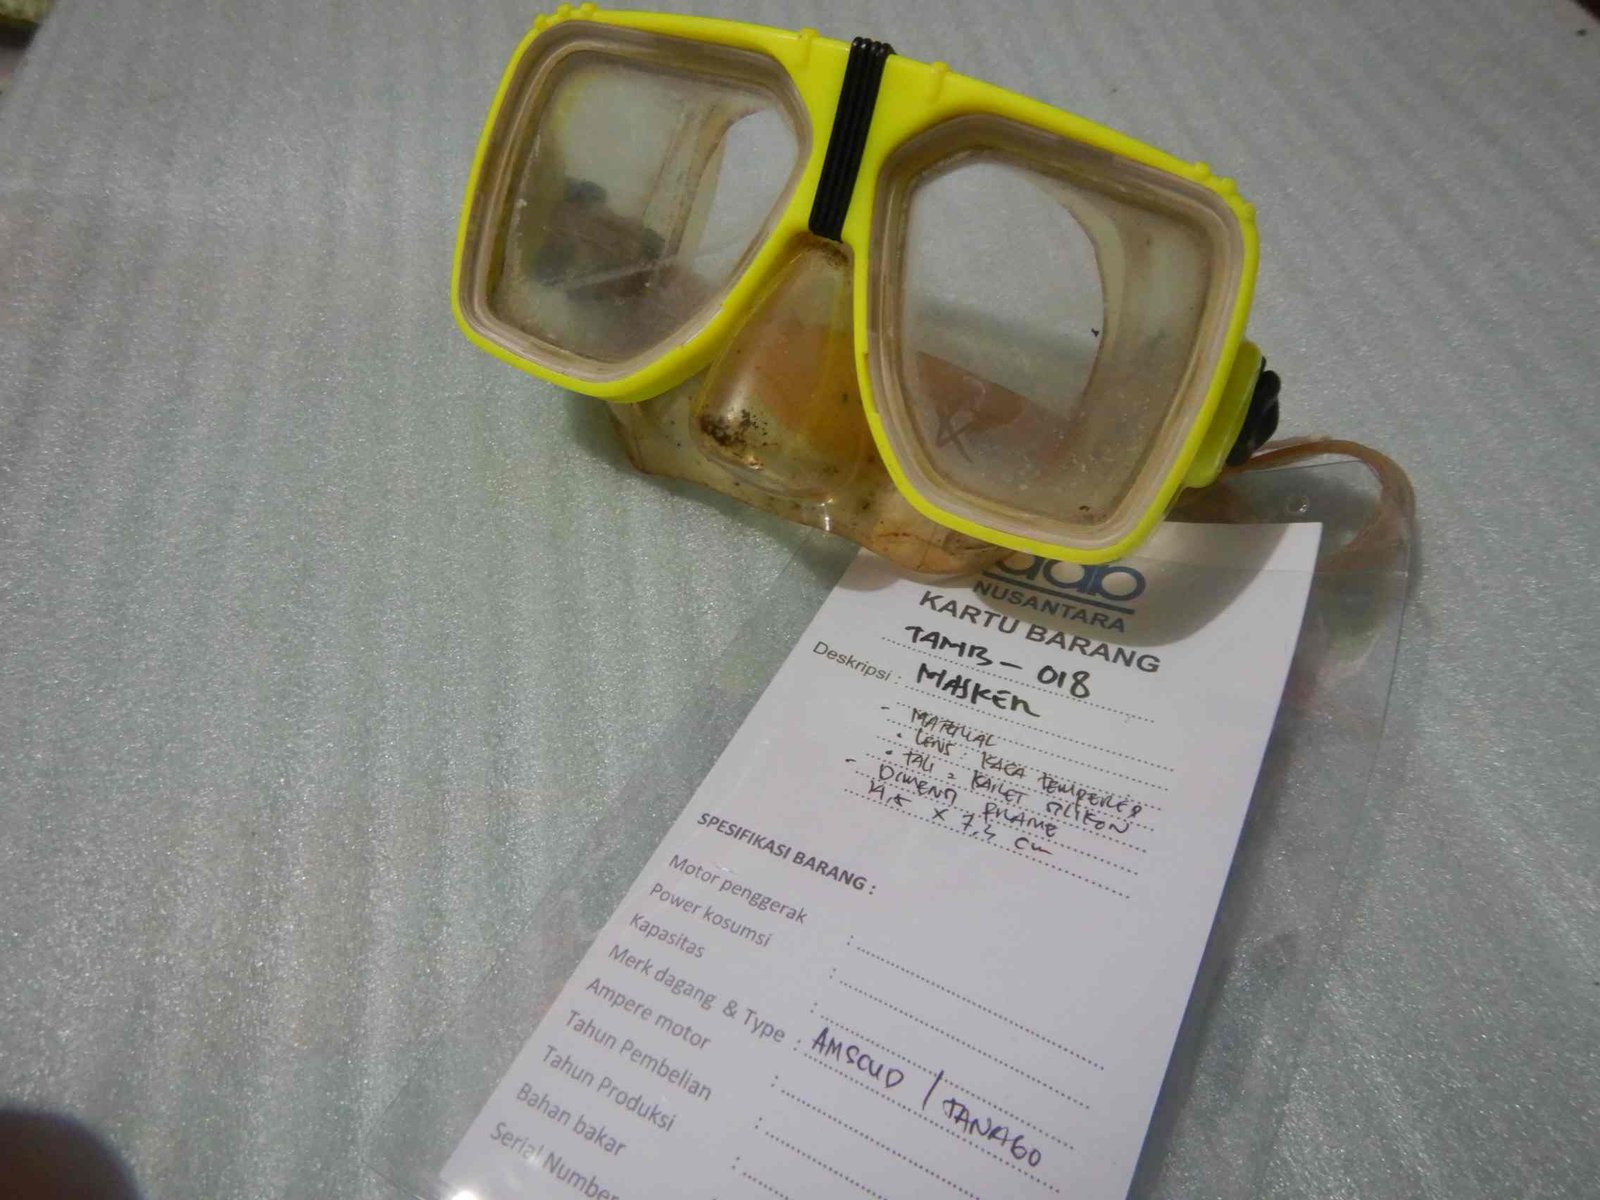 NUSANTARA
KARTU BARANG
TAMB - 018
Deskripsi : MASKER
- MATERIAL
• LENS KACA TEMPERED
• TALI = KARET SILIKON
- DIMENSI FRAME
x 7,5 cm
SPESIFIKASI BARANG :
Motor penggerak :
Power kosumsi :
Kapasitas :
Merk dagang & Type : AMSCUD / TANAGO
Ampere motor :
Tahun Pembelian :
Tahun Produksi :
Bahan bakar
Serial Number